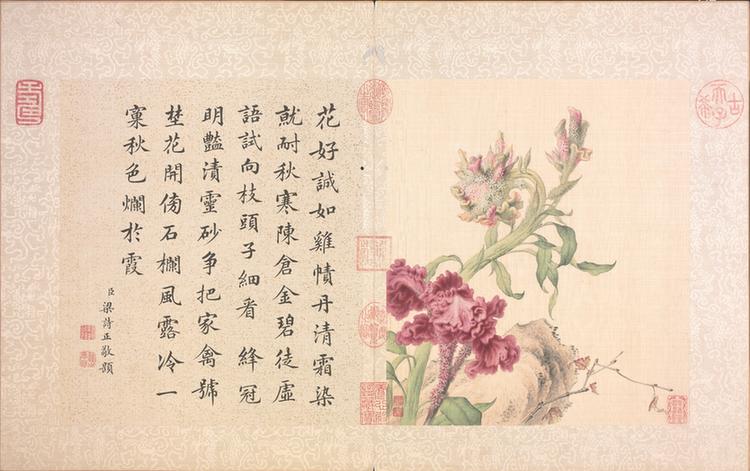 古希天子
花好誠如雞幘丹清霜染
就耐秋寒陳倉金碧徒虛
語試向枝頭子細看 絳冠
明豔漬靈砂爭把家禽號
埜花開傍石欄風露冷一
窠秋色爛於霞
臣梁詩正敬題